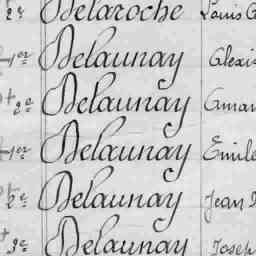 2e Delaroche Louis
1er Delaunay Alexis
2e Delaunay Aman
1er Delaunay Emile
2e Delaunay Jean
3e Delaunay Josep